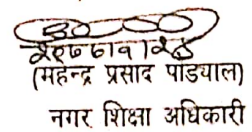 (महेन्द्र प्रसाद पाड्याल)
नगर शिक्षा अधिकारी